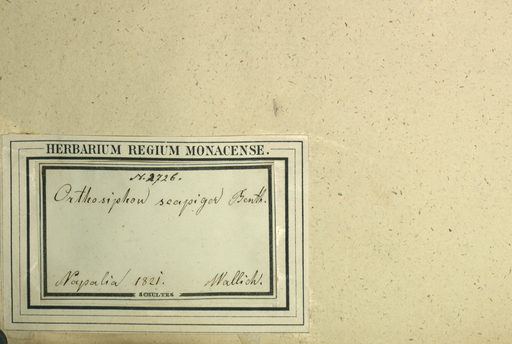 HERBARIUM REGIUM MONACENSE.
N. 2726.
Orthosiphon scapiger Benth.
Napalia 1821. Wallich.
SCHULTES